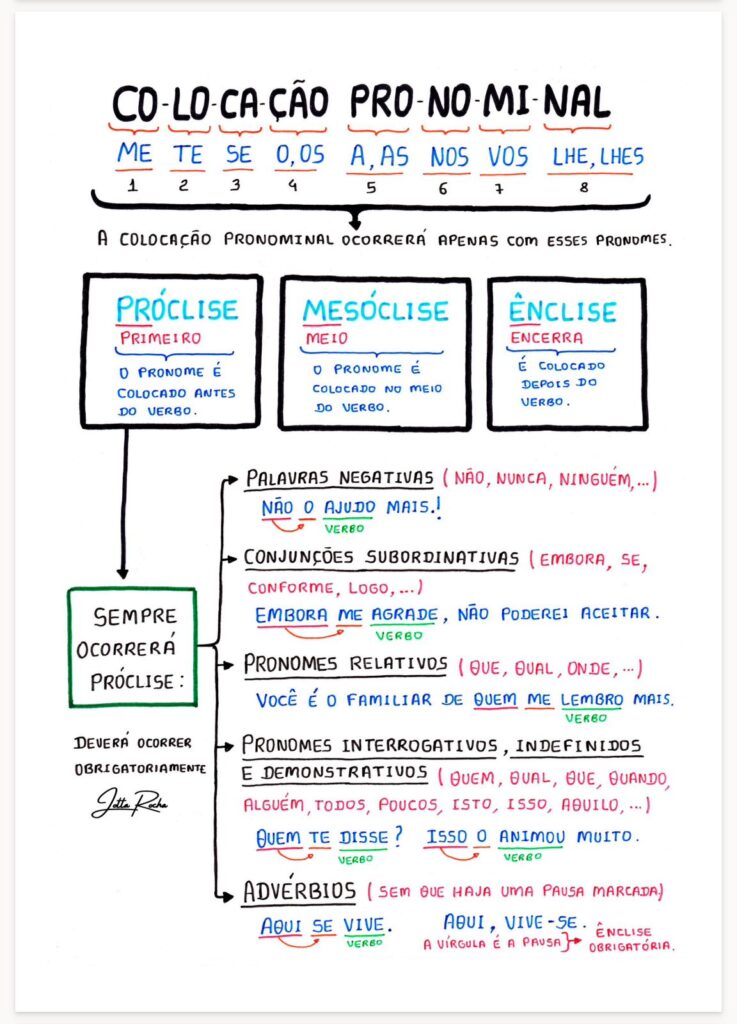 CO-LO-CA-ÇÃO PRO-NO-MI-NAL
ME TE SE O,OS A,AS NOS VOS LHE,LHES
1 2 3 4 5 6 7 8
A COLOCAÇÃO PRONOMINAL OCORRERÁ APENAS COM ESSES PRONOMES.
PRÓCLISE
PRIMEIRO
O PRONOME É
COLOCADO ANTES
DO VERBO.
MESÓCLISE
MEIO
O PRONOME É
COLOCADO NO MEIO
DO VERBO.
ÊNCLISE
ENCERRA
É COLOCADO
DEPOIS DO
VERBO.
SEMPRE
OCORRERÁ
PRÓCLISE:
DEVERÁ OCORRER
OBRIGATORIAMENTE
Jotta Rocha
PALAVRAS NEGATIVAS (NÃO, NUNCA, NINGUÉM,...)
NÃO O AJUDO MAIS.!
VERBO
CONJUNÇÕES SUBORDINATIVAS (EMBORA, SE,
CONFORME, LOGO,...)
EMBORA ME AGRADE, NÃO PODEREI ACEITAR.
VERBO
PRONOMES RELATIVOS (QUE, QUAL, ONDE,...)
VOCÊ É O FAMILIAR DE QUEM ME LEMBRO MAIS.
VERBO
PRONOMES INTERROGATIVOS, INDEFINIDOS
E DEMONSTRATIVOS (QUEM, QUAL, QUE, QUANDO,
ALGUÉM, TODOS, POUCOS, ISTO, ISSO, AQUILO, ...)
QUEM TE DISSE? ISSO O ANIMOU MUITO.
VERBO VERBO
ADVÉRBIOS (SEM QUE HAJA UMA PAUSA MARCADA)
AQUI SE VIVE. AQUI, VIVE-SE.
VERBO
A VÍRGULA É A PAUSA
ÊNCLISE
OBRIGATÓRIA.